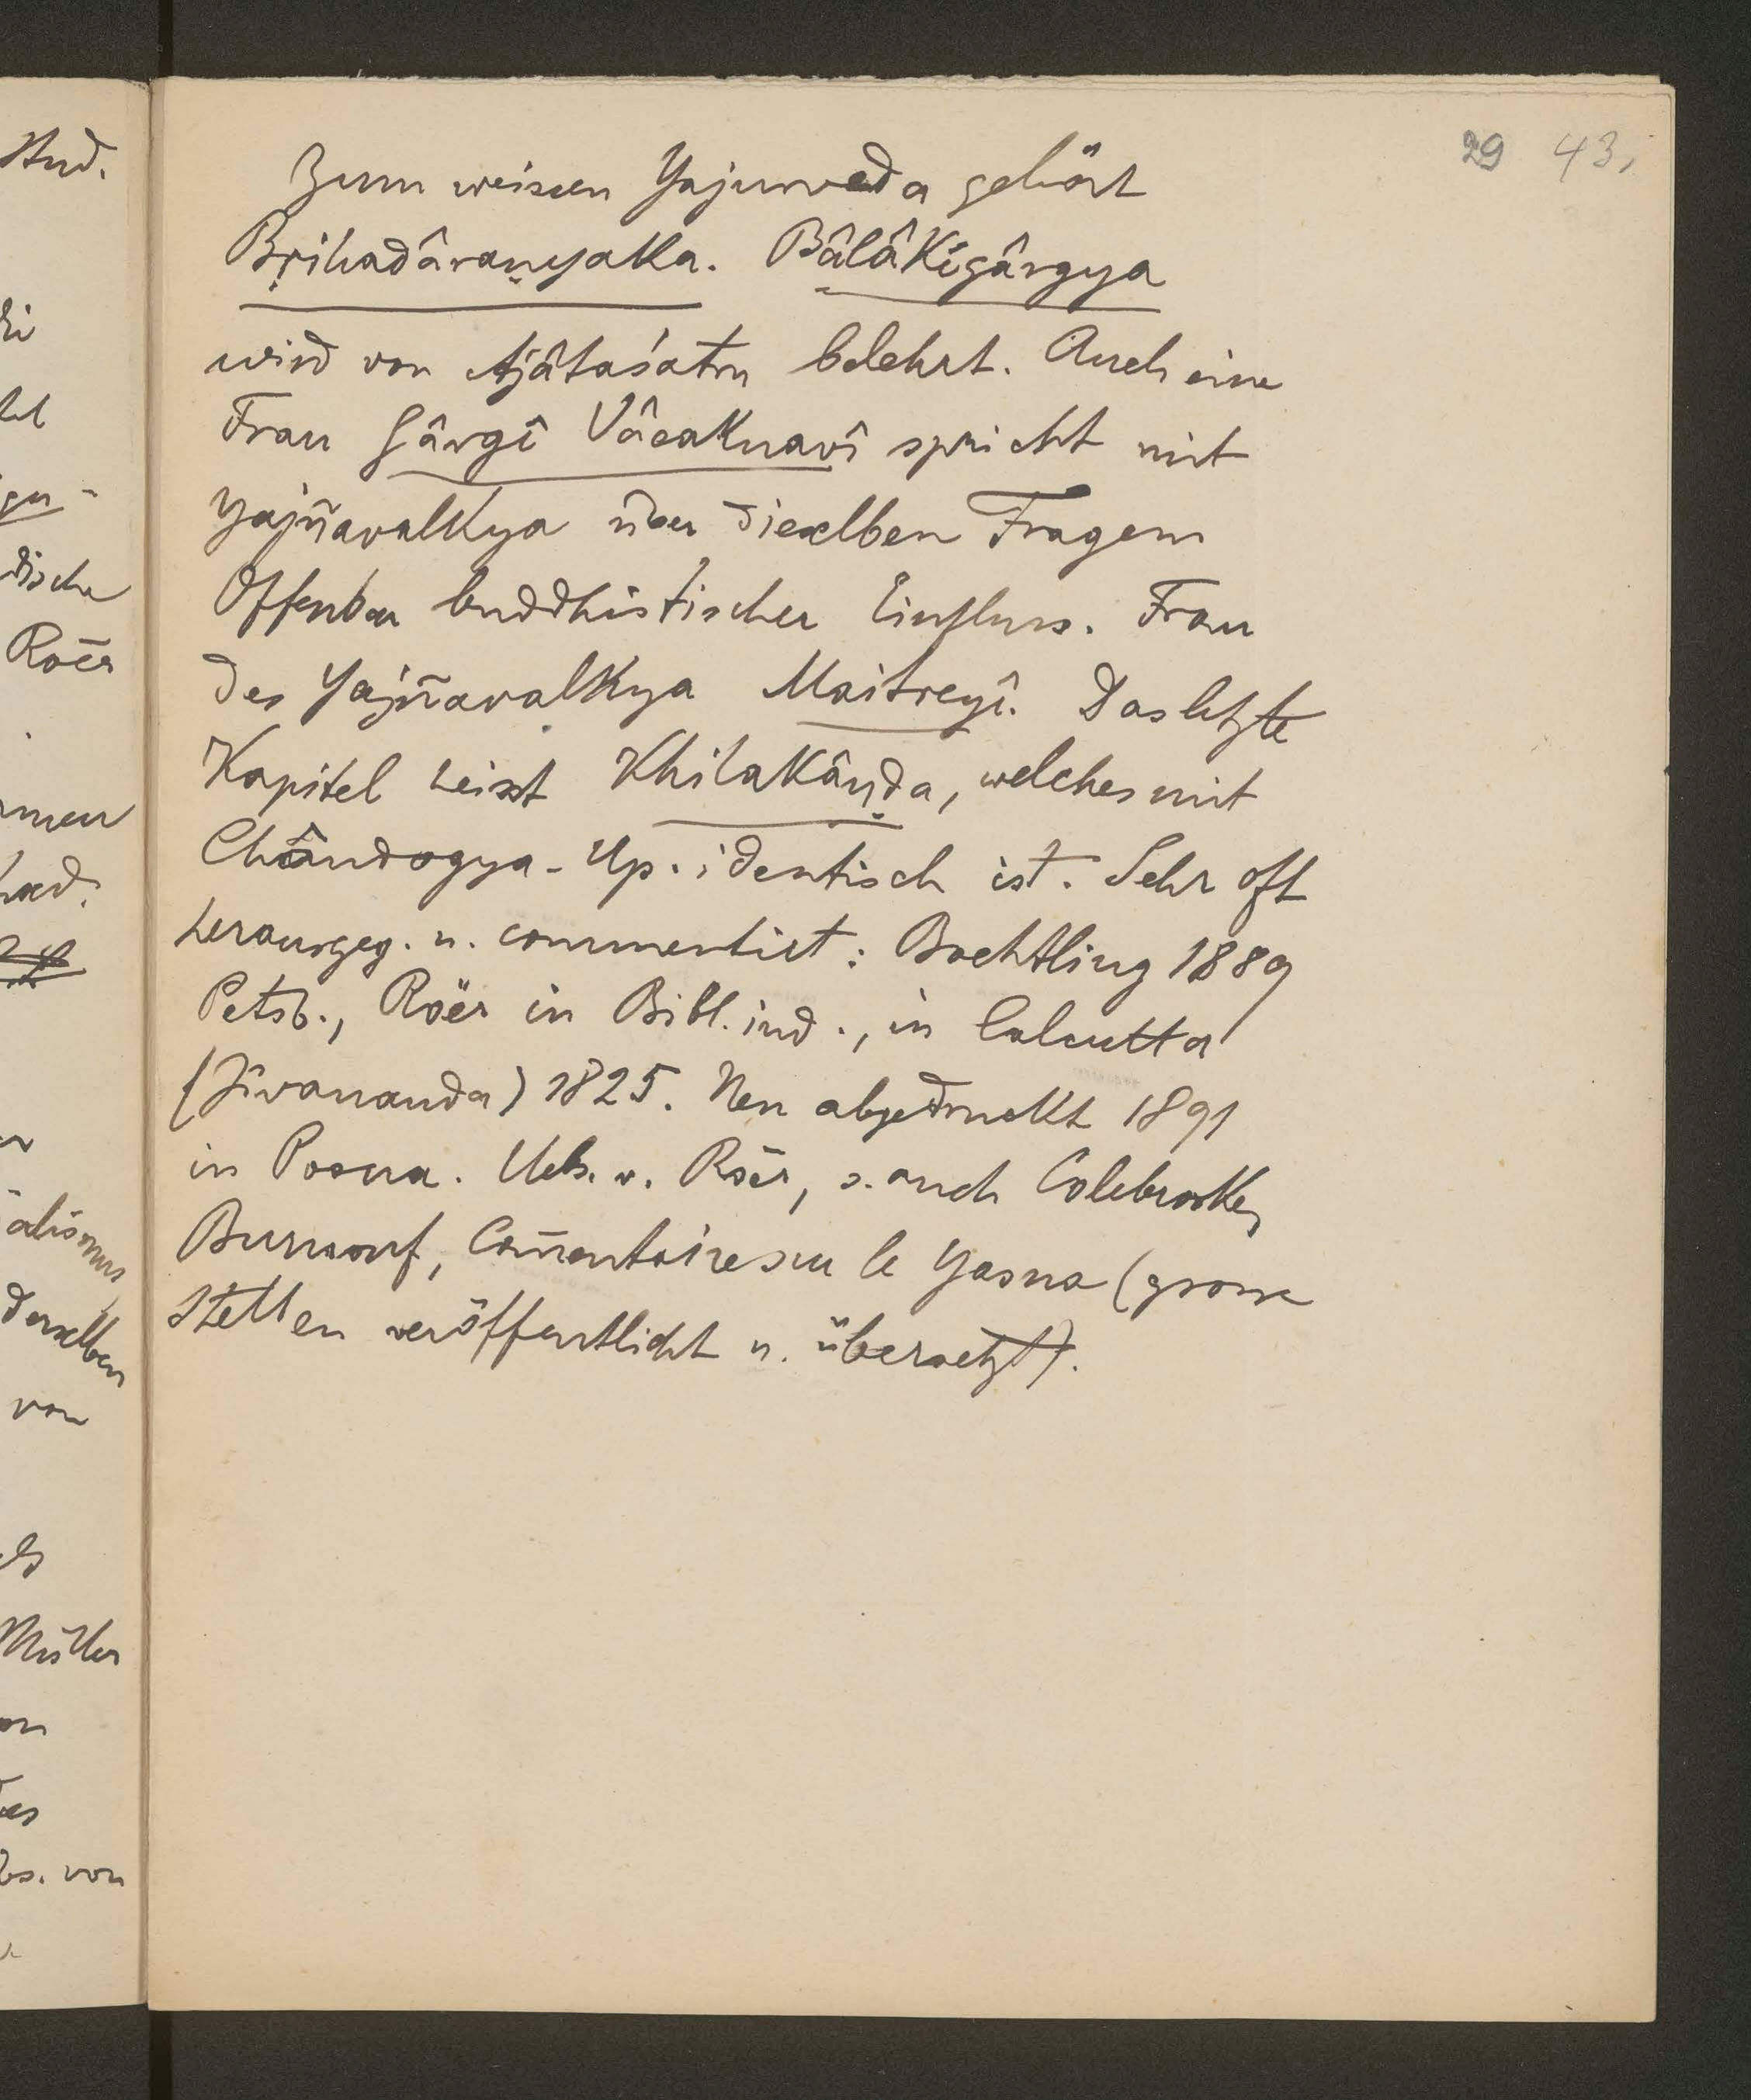 29 43,
Zum weissen Yajurveda gehört
Bṛihadâraṇyaka. Bâlâkigârgya
wird von Ajâtaśatru belehrt. Auch eine
Frau Gârgî Vâcaknavî spricht mit
Yajñavalkya über dieselben Fragen
Offenbar buddhistischer Einfluss. Frau
des Yajñavalkya Maitreyî. Das letzte
Kapitel heisst Khilakâṇḍa, welches mit
Chândogya-Up. identisch ist. Sehr oft
herausgeg. u. commentirt: Boehtling 1889
Petsb., Röer in Bibl. ind., in Calcutta
(Jîvananda) 1825. Neu abgedruckt 1891
in Poona. Ueb. v. Röer, s. auch Colebrooke,
Burnouf, Com̄entaire sur le Yasna (grosse
Stellen veröffentlicht u. übersetzt).
Stud.
Roër
dische
alismus
derselben
von
Müller
von